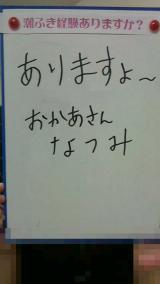 潮ふき経験ありますか？
ありますよ～
おかあさん
なつみ